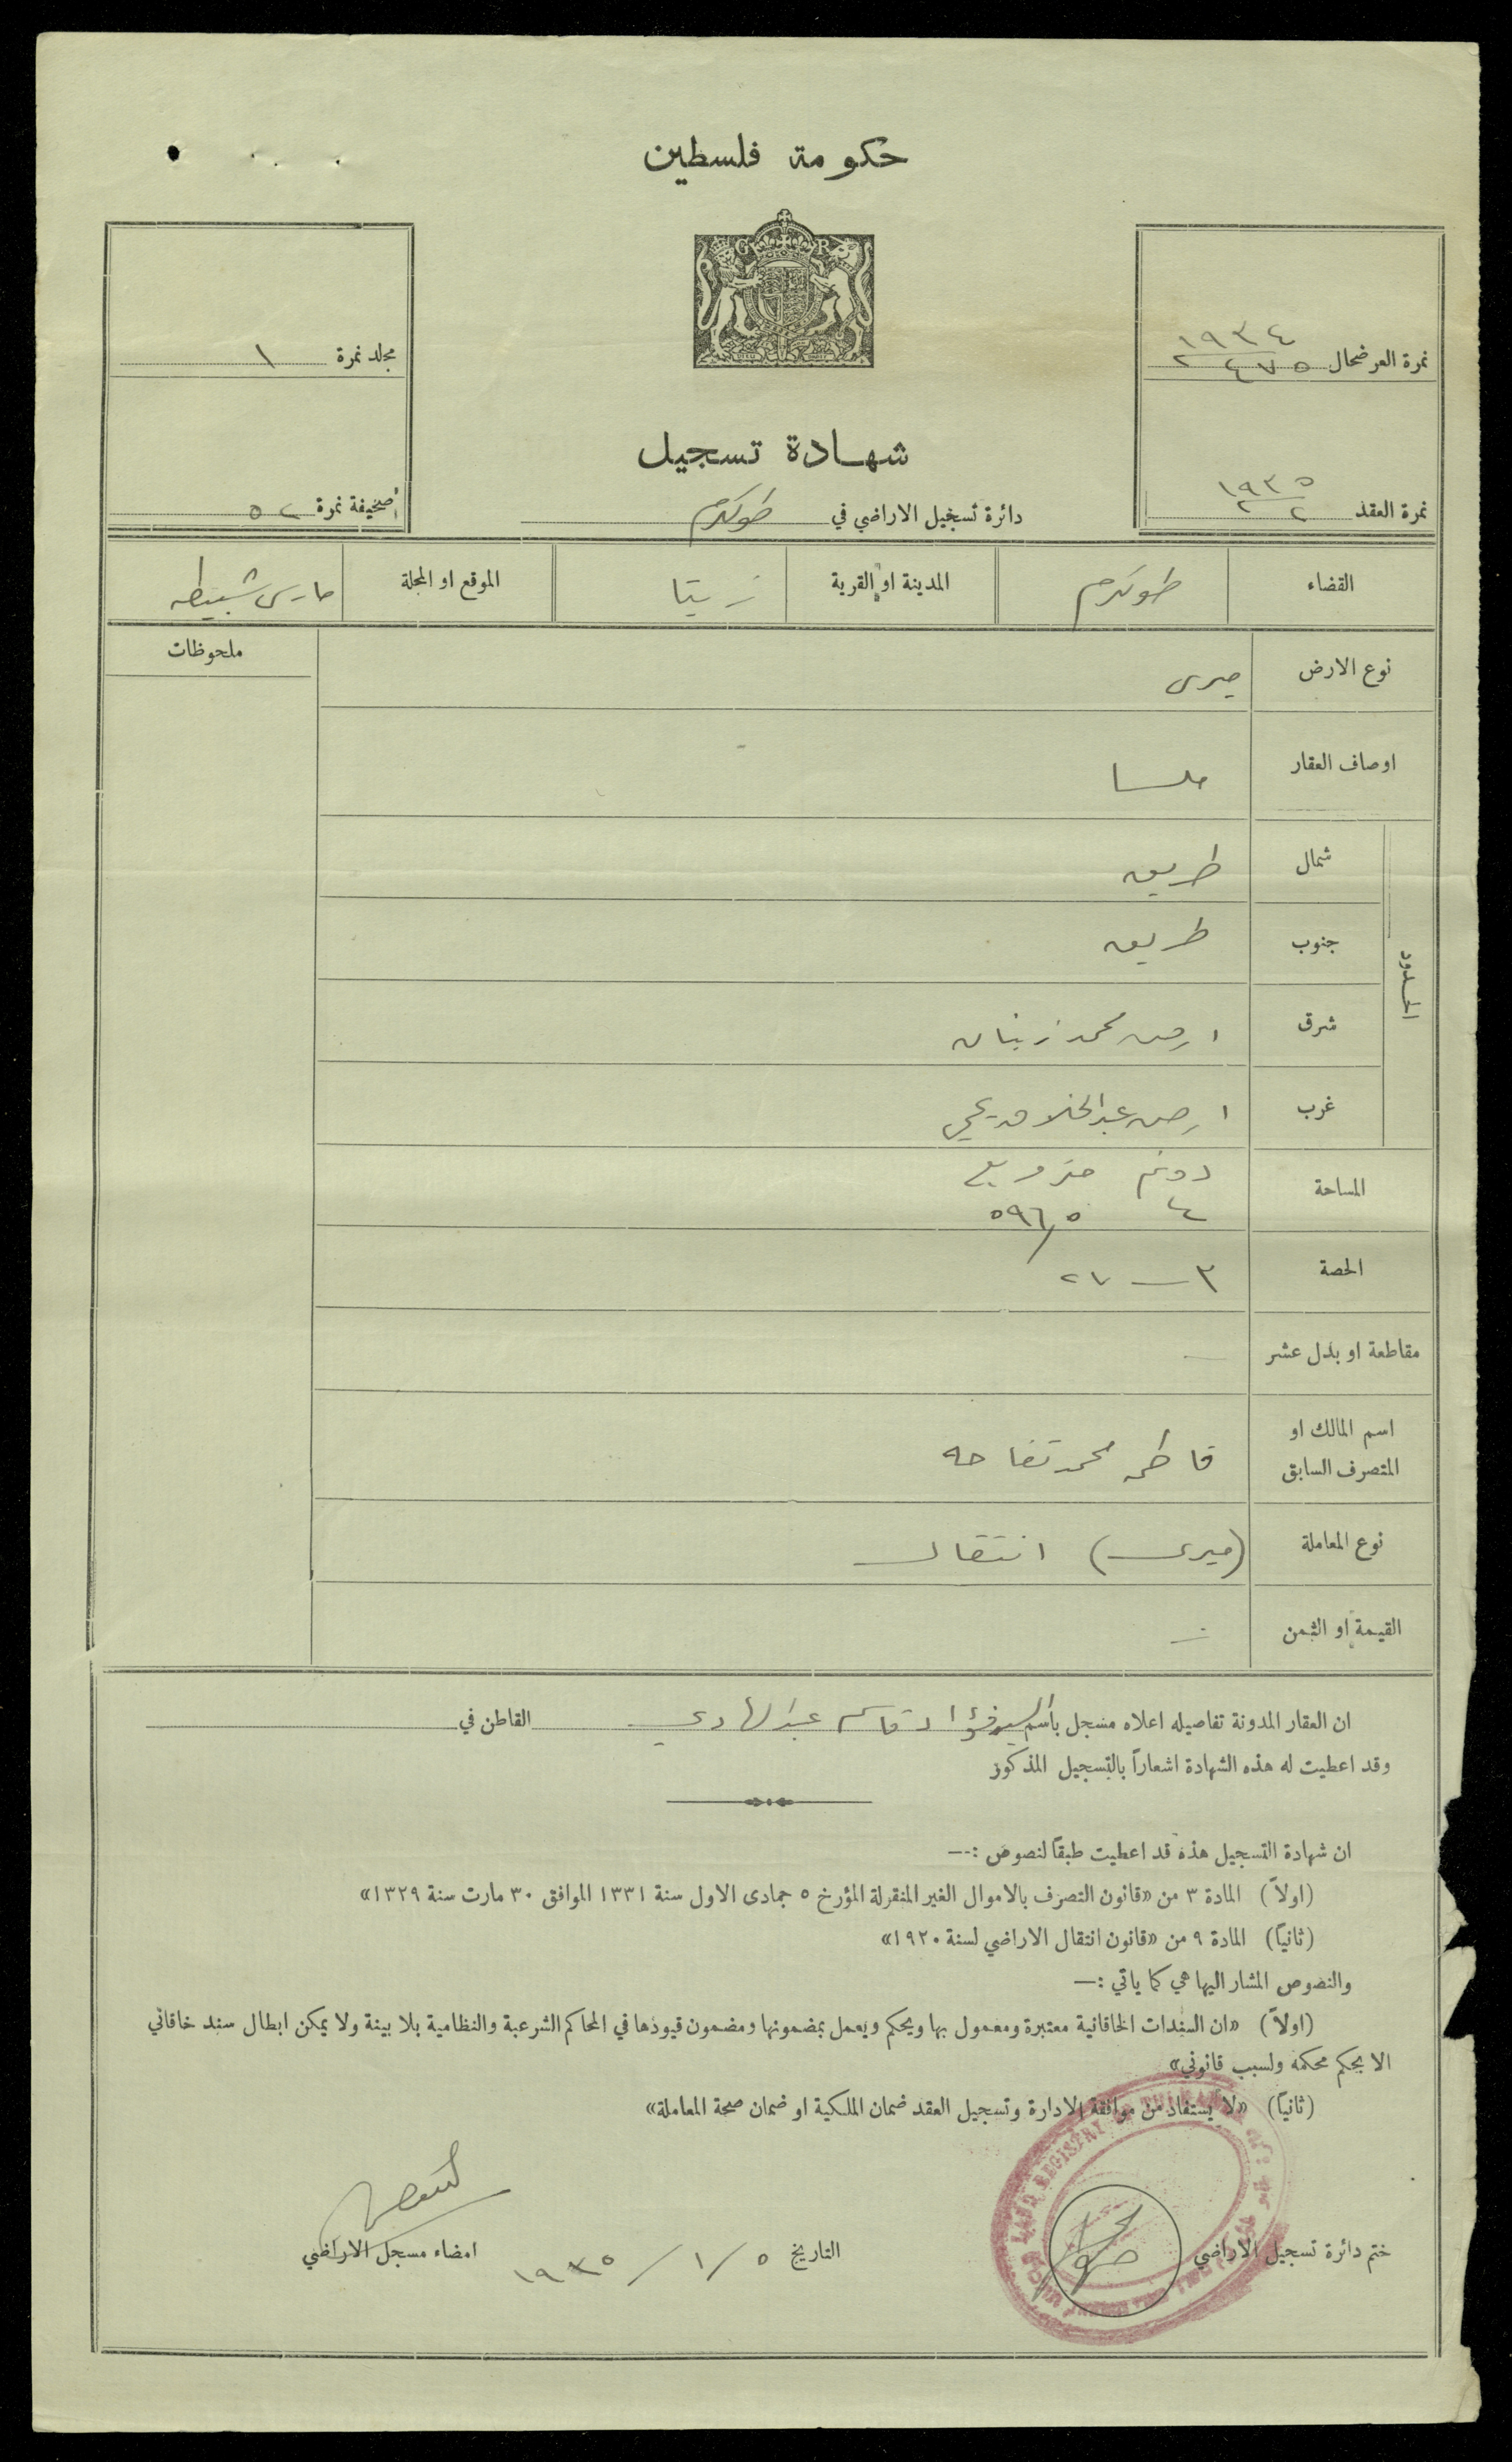 حكومة فلسطين
G R
١٩٣٤
نمرة العرضحال ٢٤٧٥
مجلد نمرة ١
شهادة تسجيل
١٩٣٥
نمرة العقد ٢٢
دائرة تسجيل الاراضي في طولكرم
صحيفة نمرة ٥٢
القضاء طولكرم المدينة او القرية زيتا الموقع او المحلة مارس شبيطه
ملحوظات
نوع الارض ميرى
اوصاف العقار ملسا
الحدود
شمال طريق
جنوب طريق
شرق ارض محمد زيتان
غرب ارض عبد الخلاق يحيى
المساحة دونم متر مربع
٤ ٥٩٦,٥
الحصة ٣ — ٢٧
مقاطعة او بدل عشر —
اسم المالك او
المتصرف السابق فاطمه محمد تفاحه
نوع المعاملة (ميرى) انتقال
القيمة او الثمن
ان العقار المدونة تفاصيله اعلاه مسجل باسم السيد فؤاد قاسم عبد الهادي القاطن في
وقد اعطيت له هذه الشهادة اشعاراً بالتسجيل المذكور
ان شهادة التسجيل هذه قد اعطيت طبقاً لنصوص :—
(اولاً) المادة ٣ من «قانون التصرف بالاموال الغير المنقولة المؤرخ ٥ جمادى الاول سنة ١٣٣١ الموافق ٣٠ مارت سنة ١٣٢٩»
(ثانياً) المادة ٩ من «قانون انتقال الاراضي لسنة ١٩٢٠»
والنصوص المشار اليها هي كما ياتي :—
(اولاً) «ان السندات الخاقانية معتبرة ومعمول بها ويحكم ويعمل بمضمونها ومضمون قيودها في المحاكم الشرعية والنظامية بلا بينة ولا يمكن ابطال سند خاقاني
الا بحكم محكمة ولسبب قانوني»
(ثانياً) «لا يستفاد من موافقة الادارة وتسجيل العقد ضمان الملكية او ضمان صحة المعاملة»
LAND REGISTRY
ختم دائرة تسجيل الاراضي
التاريخ ٥/١/١٩٣٥
امضاء مسجل الاراضي